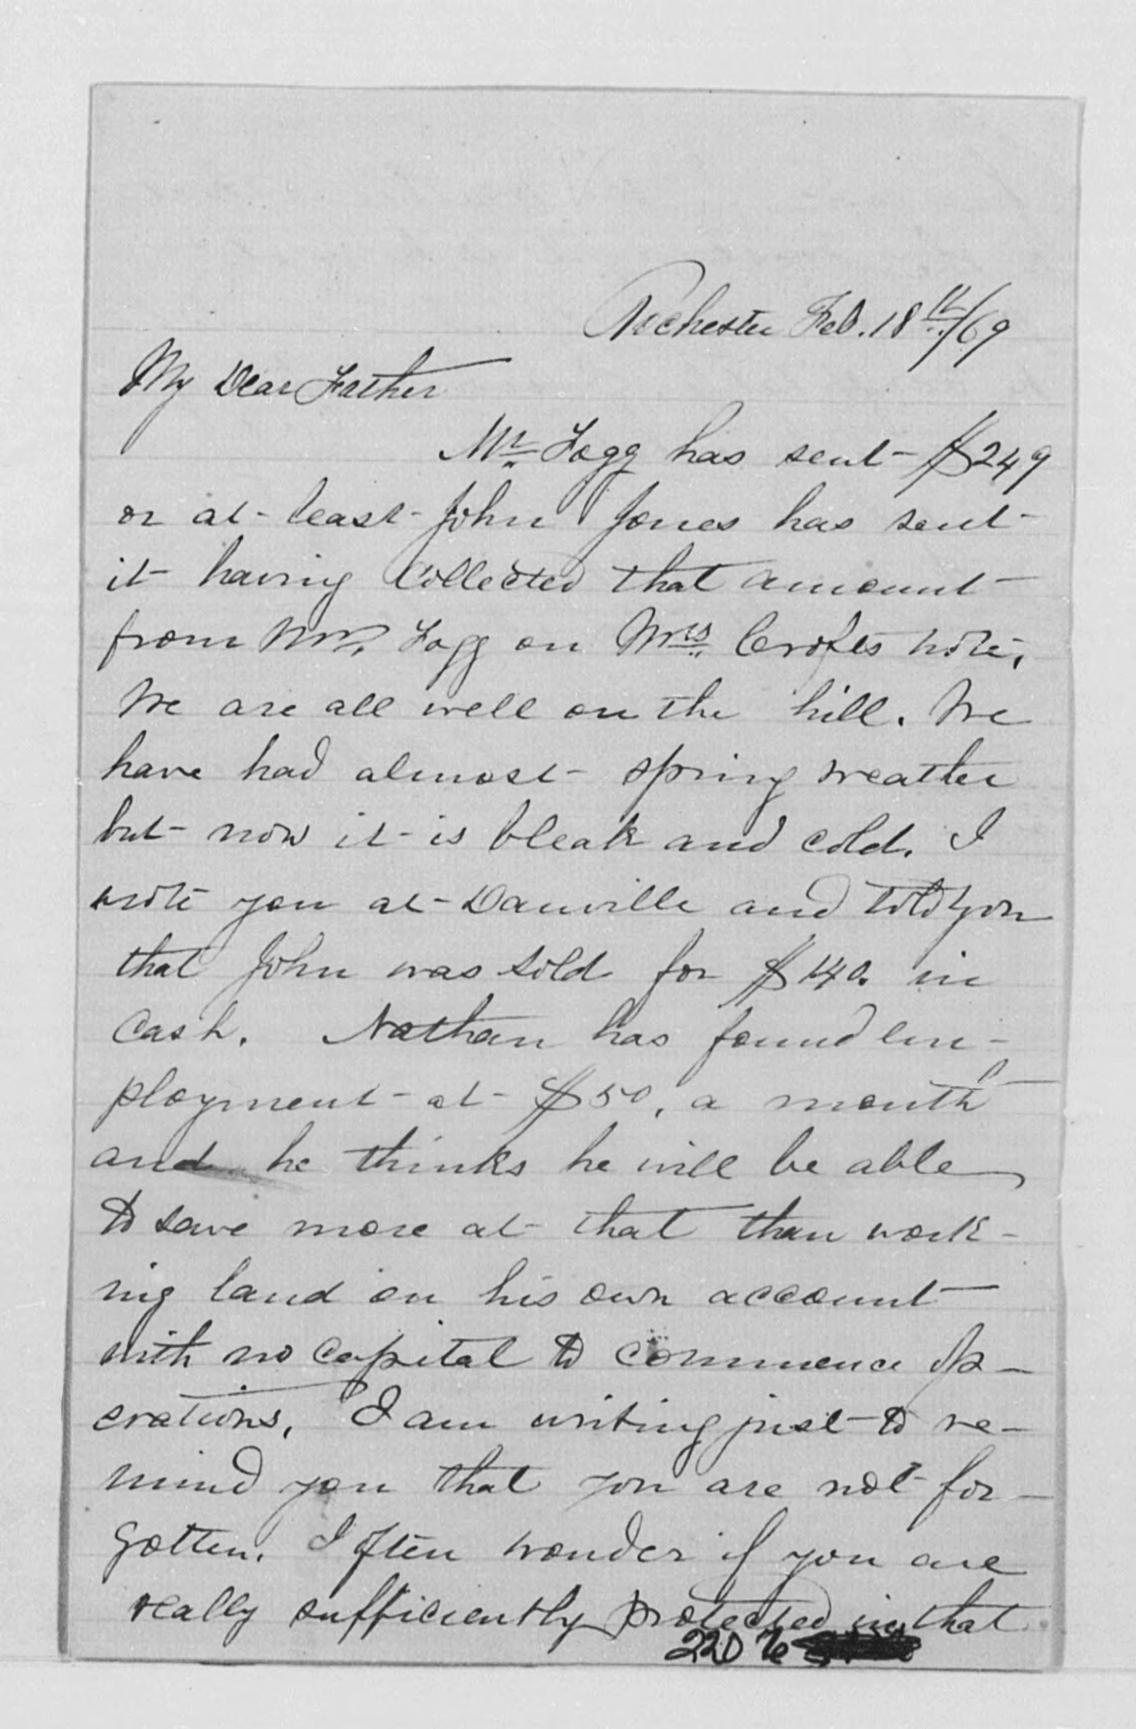 Rochester Feb. 18th/69
My Dear Father
Mr. Fogg has sent $249
or at least John Jones has sent
it having Collected that amount
from Mr. Fogg on Mrs. Crofts note.
We are all well on the hill. We
have had almost spring weather
but now it is bleak and cold. I
wrote you at Danville and told you
that John was sold for $140. in
Cash. Nathan has found em-
ployment at $50. a month
and he thinks he will be able
to save more at that than work-
ing land on his own account
with no capital to commence op-
erations. I am writing just to re-
mind you that you are not for-
gotten. I often wonder if you are
really sufficiently protected in that
220